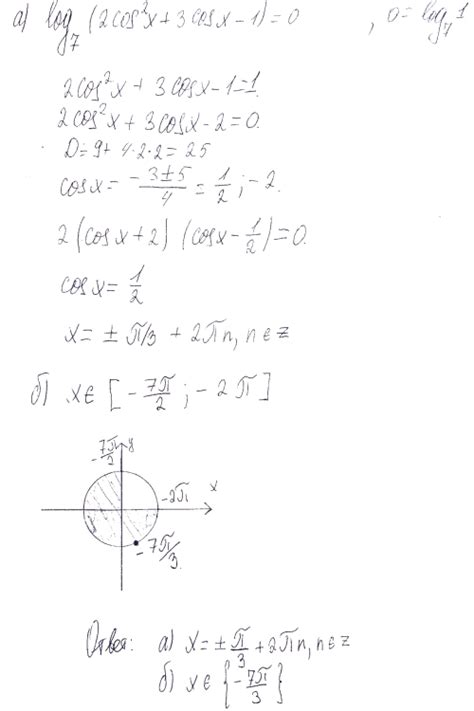 а) log₇ (2cos²x + 3cosx − 1) = 0 , 0 = log₇ 1
2cos²x + 3cosx − 1 = 1
2cos²x + 3cosx − 2 = 0.
D = 9 + 4·2·2 = 25
cosx = (−3 ± 5)/4 = 1/2 ; −2.
2 (cosx + 2) (cosx − 1/2) = 0.
cosx = 1/2
x = ± π/3 + 2πn, n ∈ z
б) x ∈ [−7π/2 ; −2π]
−7π/2 y
−2π x
−7π/3.
Ответ: а) x = ± π/3 + 2πn, n ∈ z
б) x ∈ {−7π/3}